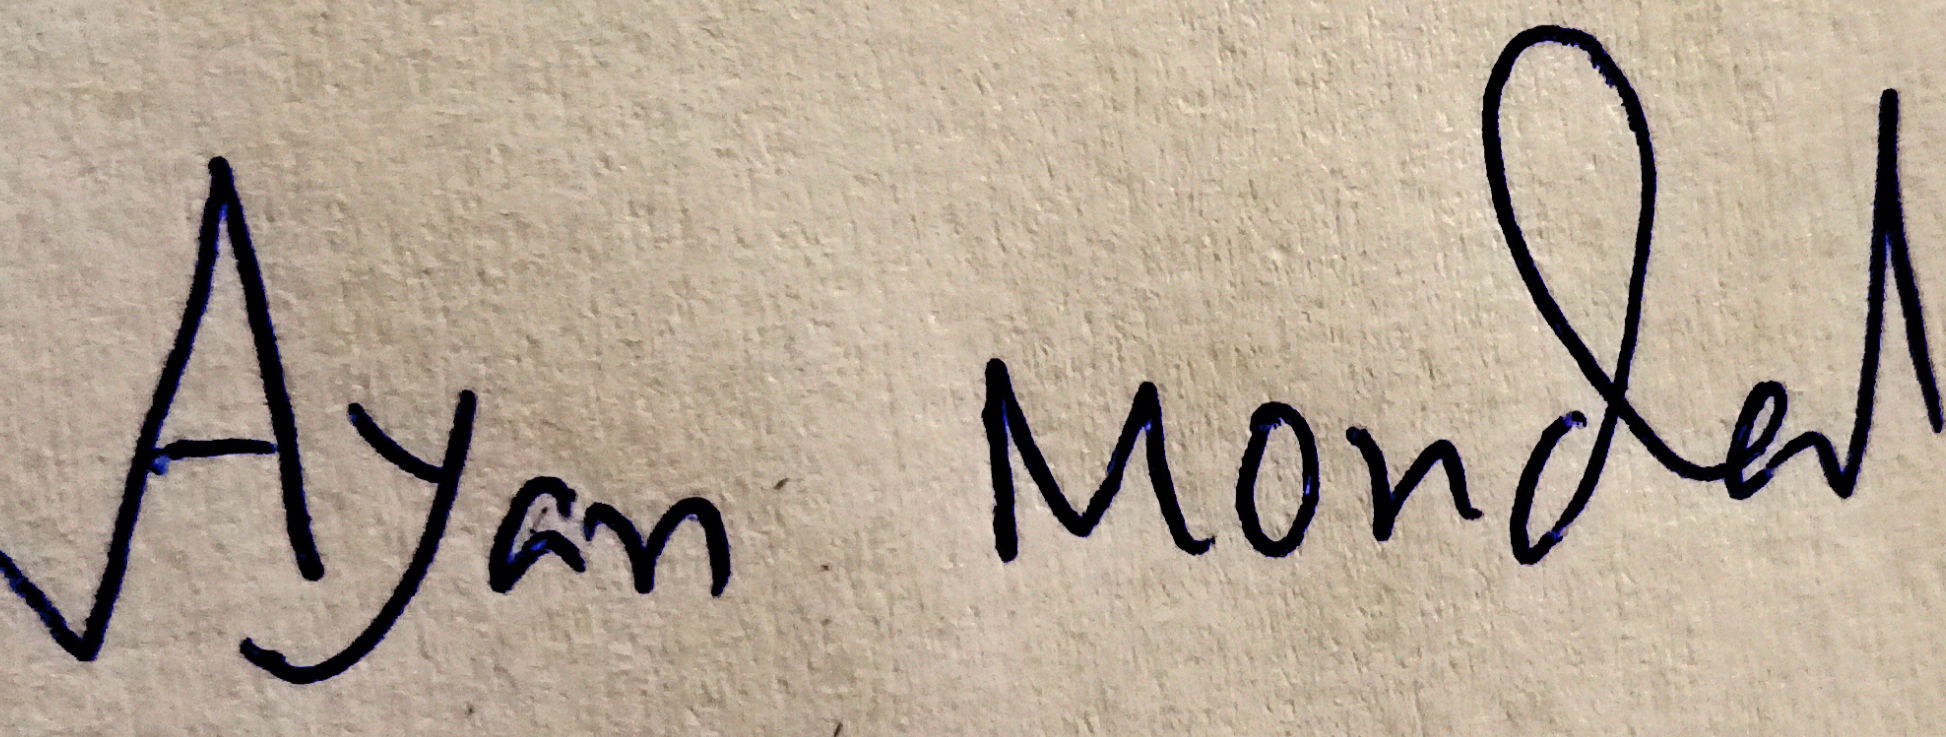 Ayan Mondal